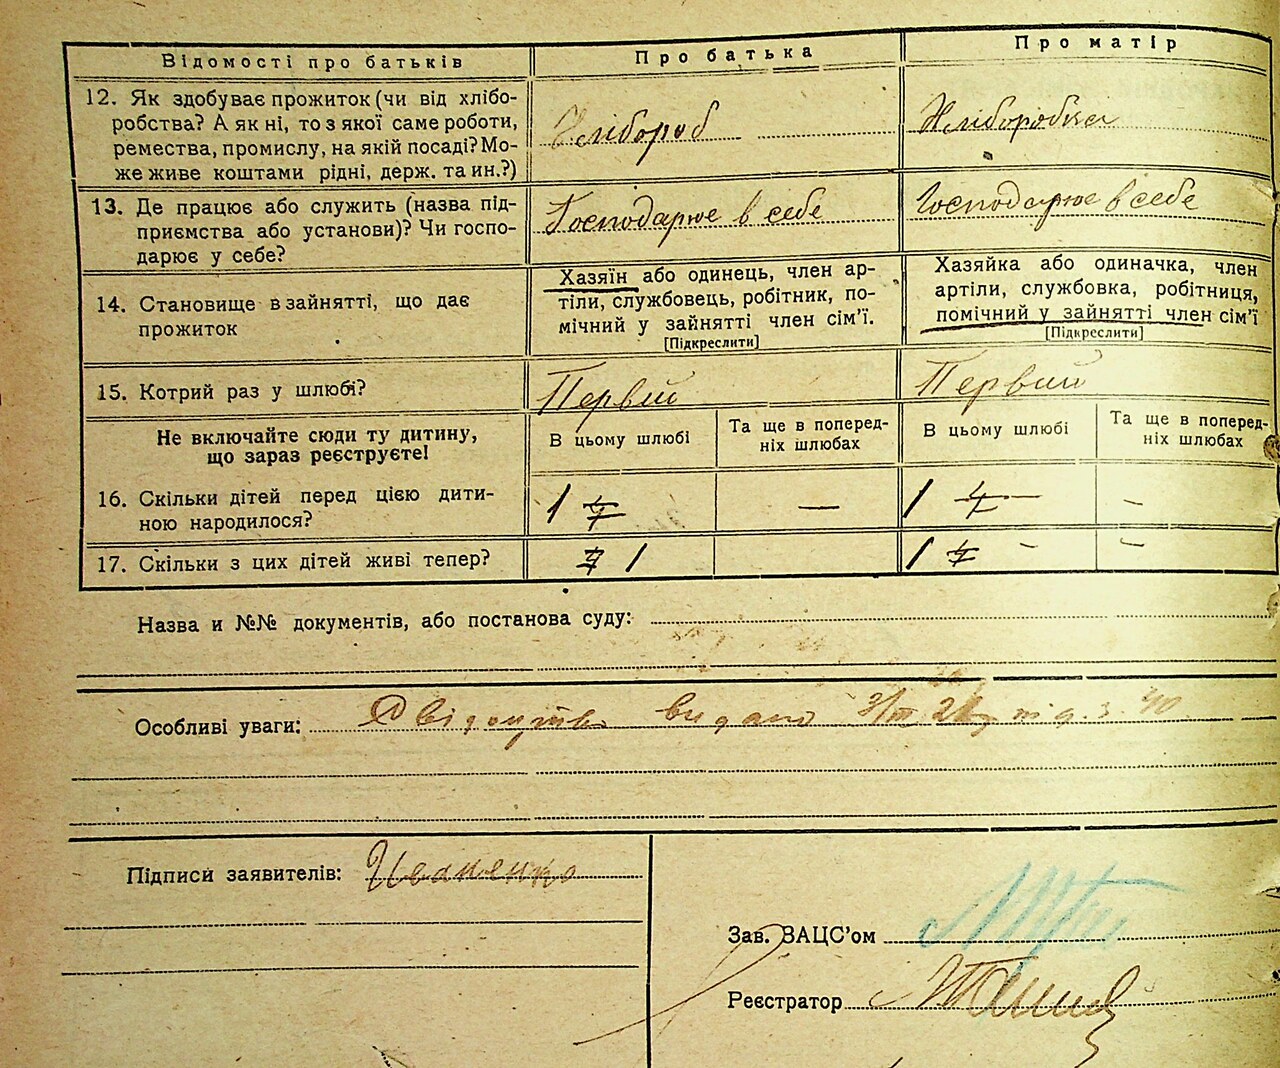 Відомості про батьків
Про батька
Про матір
12. Як здобуває прожиток (чи від хлібо-
робства? А як ні, то з якої саме роботи,
ремества, промислу, на якій посаді? Мо-
же живе коштами рідні, держ. та ин.?)
Хлібороб
Хліборобка
13. Де працює або служить (назва під-
приємства або установи)? Чи госпо-
дарює у себе?
Господарює в себе
Господарює в себе
14. Становище в зайнятті, що дає
прожиток
Хазяїн або одинець, член ар-
тіли, службовець, робітник, по-
мічний у зайнятті член сім'ї.
[Підкреслити]
Хазяйка або одиначка, член
артіли, службовка, робітниця,
помічний у зайнятті член сім'ї
[Підкреслити]
15. Котрий раз у шлюбі?
Первий
Первий
Не включайте сюди ту дитину,
що зараз реєструєте!
В цьому шлюбі
Та ще в поперед-
ніх шлюбах
В цьому шлюбі
Та ще в поперед-
ніх шлюбах
16. Скільки дітей перед цією дити-
ною народилося?
1 —
1 —
17. Скільки з цих дітей живі тепер?
1
1 - -
Назва и №№ документів, або постанова суду:
Особливі уваги: Свідоцтво видано
Підписи заявителів: Иваненко
Зав. ЗАЦС'ом
Реєстратор